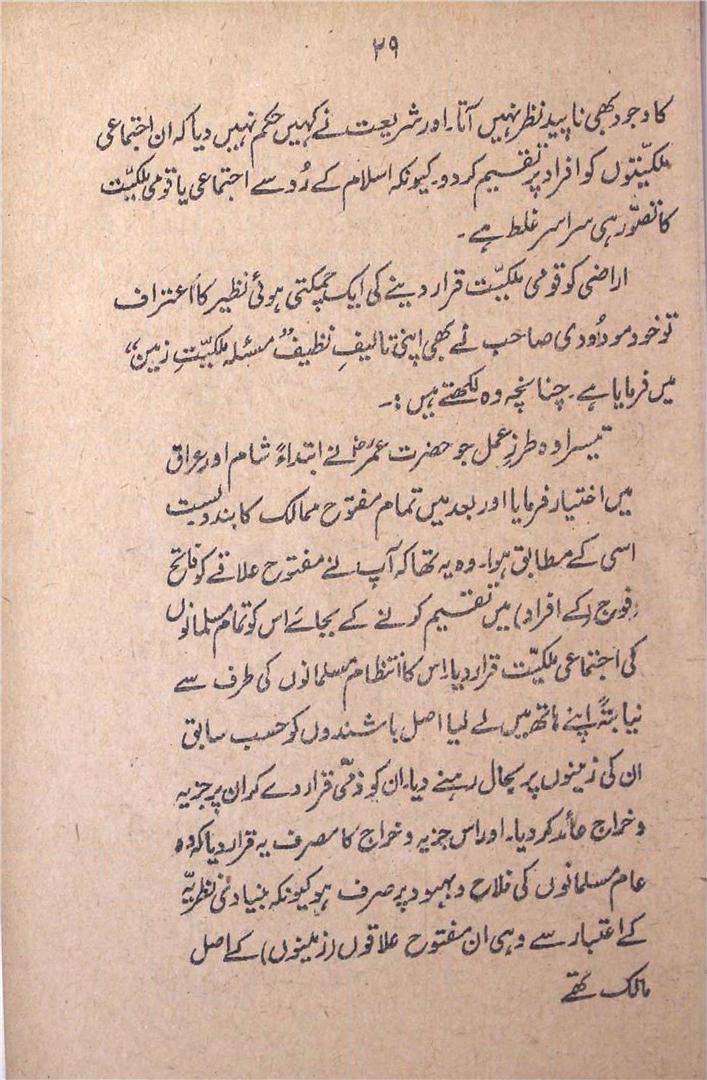 ۲۹
کا وجود بھی ناپید نظر نہیں آتا۔ اور شریعت نے کہیں حکم نہیں دیا کہ ان اجتماعی
ملکیّتوں کو افراد پر تقسیم کر دو۔ کیونکہ اسلام کے رُو سے اجتماعی یا قومی ملکیّت
کا تصوّر ہی سراسر غلط ہے۔
اراضی کو قومی ملکیّت قرار دینے کی ایک چمکتی ہوئی نظیر کا اعتراف
تو خود مودُودی صاحب نے بھی اپنی تالیفِ نظیف "مسئلہ ملکیّتِ زمین"
میں فرمایا ہے۔ چنانچہ وہ لکھتے ہیں :۔
تیسرا وہ طرزِ عمل جو حضرت عمرؓ نے ابتداءً شام اور عراق
میں اختیار فرمایا اور بعد میں تمام مفتوح ممالک کا بندوبست
اسی کے مطابق ہوا۔ وہ یہ تھا کہ آپ نے مفتوح علاقے کو فاتح
فوج (کے افراد) میں تقسیم کرنے کے بجائے اس کو تمام مسلمانوں
کی اجتماعی ملکیّت قرار دیا۔ اس کا انتظام مسلمانوں کی طرف سے
نیابتہً اپنے ہاتھ میں لے لیا اصل باشندوں کو حسب سابق
ان کی زمینوں پر بحال رہنے دیا۔ ان کو ذمّی قرار دے کر ان پر جزیہ
و خراج عائد کر دیا۔ اور اس جزیہ و خراج کا مصرف یہ قرار دیا کہ وہ
عام مسلمانوں کی فلاح و بہبود پر صرف ہو کیونکہ بنیادی نظریّہ
کے اعتبار سے وہی ان مفتوح علاقوں (زمینوں) کے اصل
مالک تھے